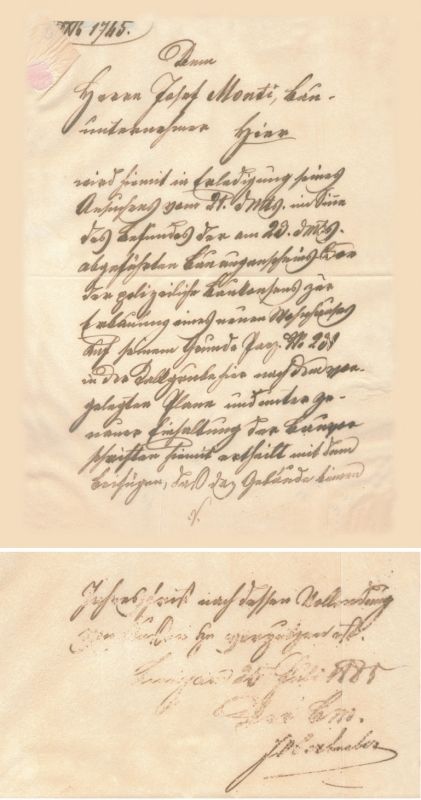 No 1745.
Dem
Herrn Josef Monti, Bau-
unternehmer Hier
wird hiemit in Erledigung seines
Ansuchens vom 21. d Mts. im Sinne
des Befundes der am 23. d Mts.
abgeführten Bauaugenscheins
der polizeiliche Baukonsens zur
Erbauung eines neuen Wohnhauses
auf seinem Grunde Parz. No 231
in der hier nach dem vor-
gelegten Plane und unter ge-
nauer Einhaltung der Bauvor
schriften hiemit ertheilt mit dem
Beifügen, daß das Gebäude binnen
Jahresfrist nach dessen Vollendung
zu verputzen ist.
25 Juli 1885
Der Bm.